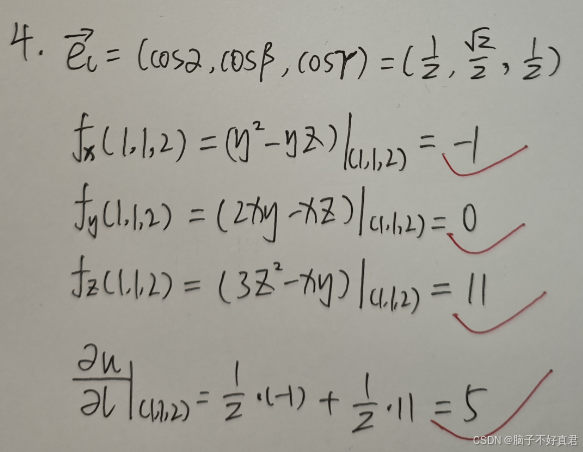 4. $\vec{e}_l$ = (cosα, cosβ, cosγ) = ($\frac{1}{2}$, $\frac{\sqrt{2}}{2}$, $\frac{1}{2}$)
$f_x$(1,1,2) = (y² - yz)|₍₁,₁,₂₎ = -1
$f_y$(1,1,2) = (2xy - xz)|₍₁,₁,₂₎ = 0
$f_z$(1,1,2) = (3z² - xy)|₍₁,₁,₂₎ = 11
$\frac{∂u}{∂l}$|₍₁,₁,₂₎ = $\frac{1}{2}$·(-1) + $\frac{1}{2}$·11 = 5
CSDN @脑子不好真君